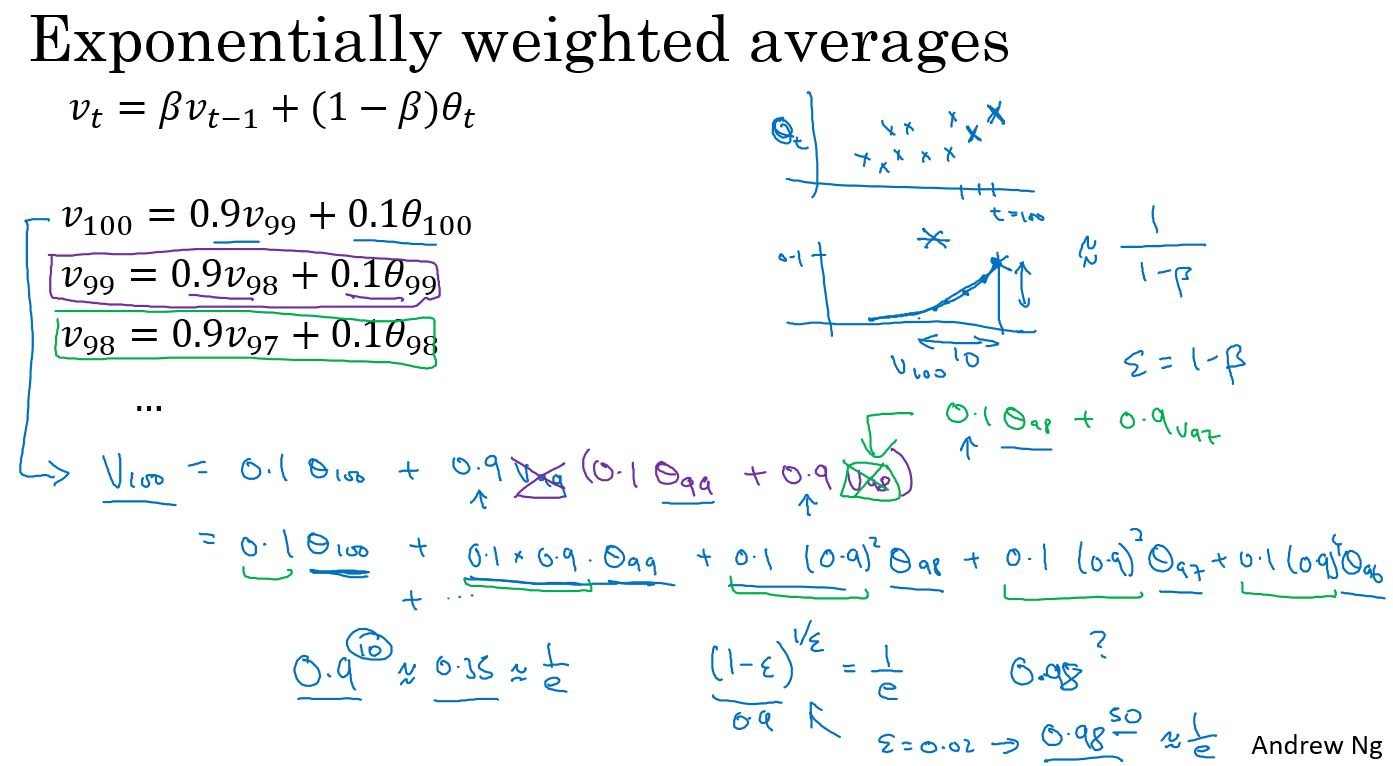 Exponentially weighted averages
v_t = βv_{t−1} + (1 − β)θ_t
θ_t
t=100
v_100 = 0.9v_99 + 0.1θ_100
v_99 = 0.9v_98 + 0.1θ_99
v_98 = 0.9v_97 + 0.1θ_98
...
0.1
V_100 10
≈ 1/(1-β)
ε = 1-β
0.1 θ_98 + 0.9 v_97
V_100 = 0.1 θ_100 + 0.9 v_99 (0.1 θ_99 + 0.9 v_98)
= 0.1 θ_100 + 0.1 × 0.9 · θ_99 + 0.1 (0.9)^2 θ_98 + 0.1 (0.9)^3 θ_97 + 0.1 (0.9)^4 θ_96
+ ...
0.9^10 ≈ 0.35 ≈ 1/e
(1-ε)^{1/ε} = 1/e
0.9
0.98 ?
ε = 0.02 → 0.98^50 ≈ 1/e
Andrew Ng